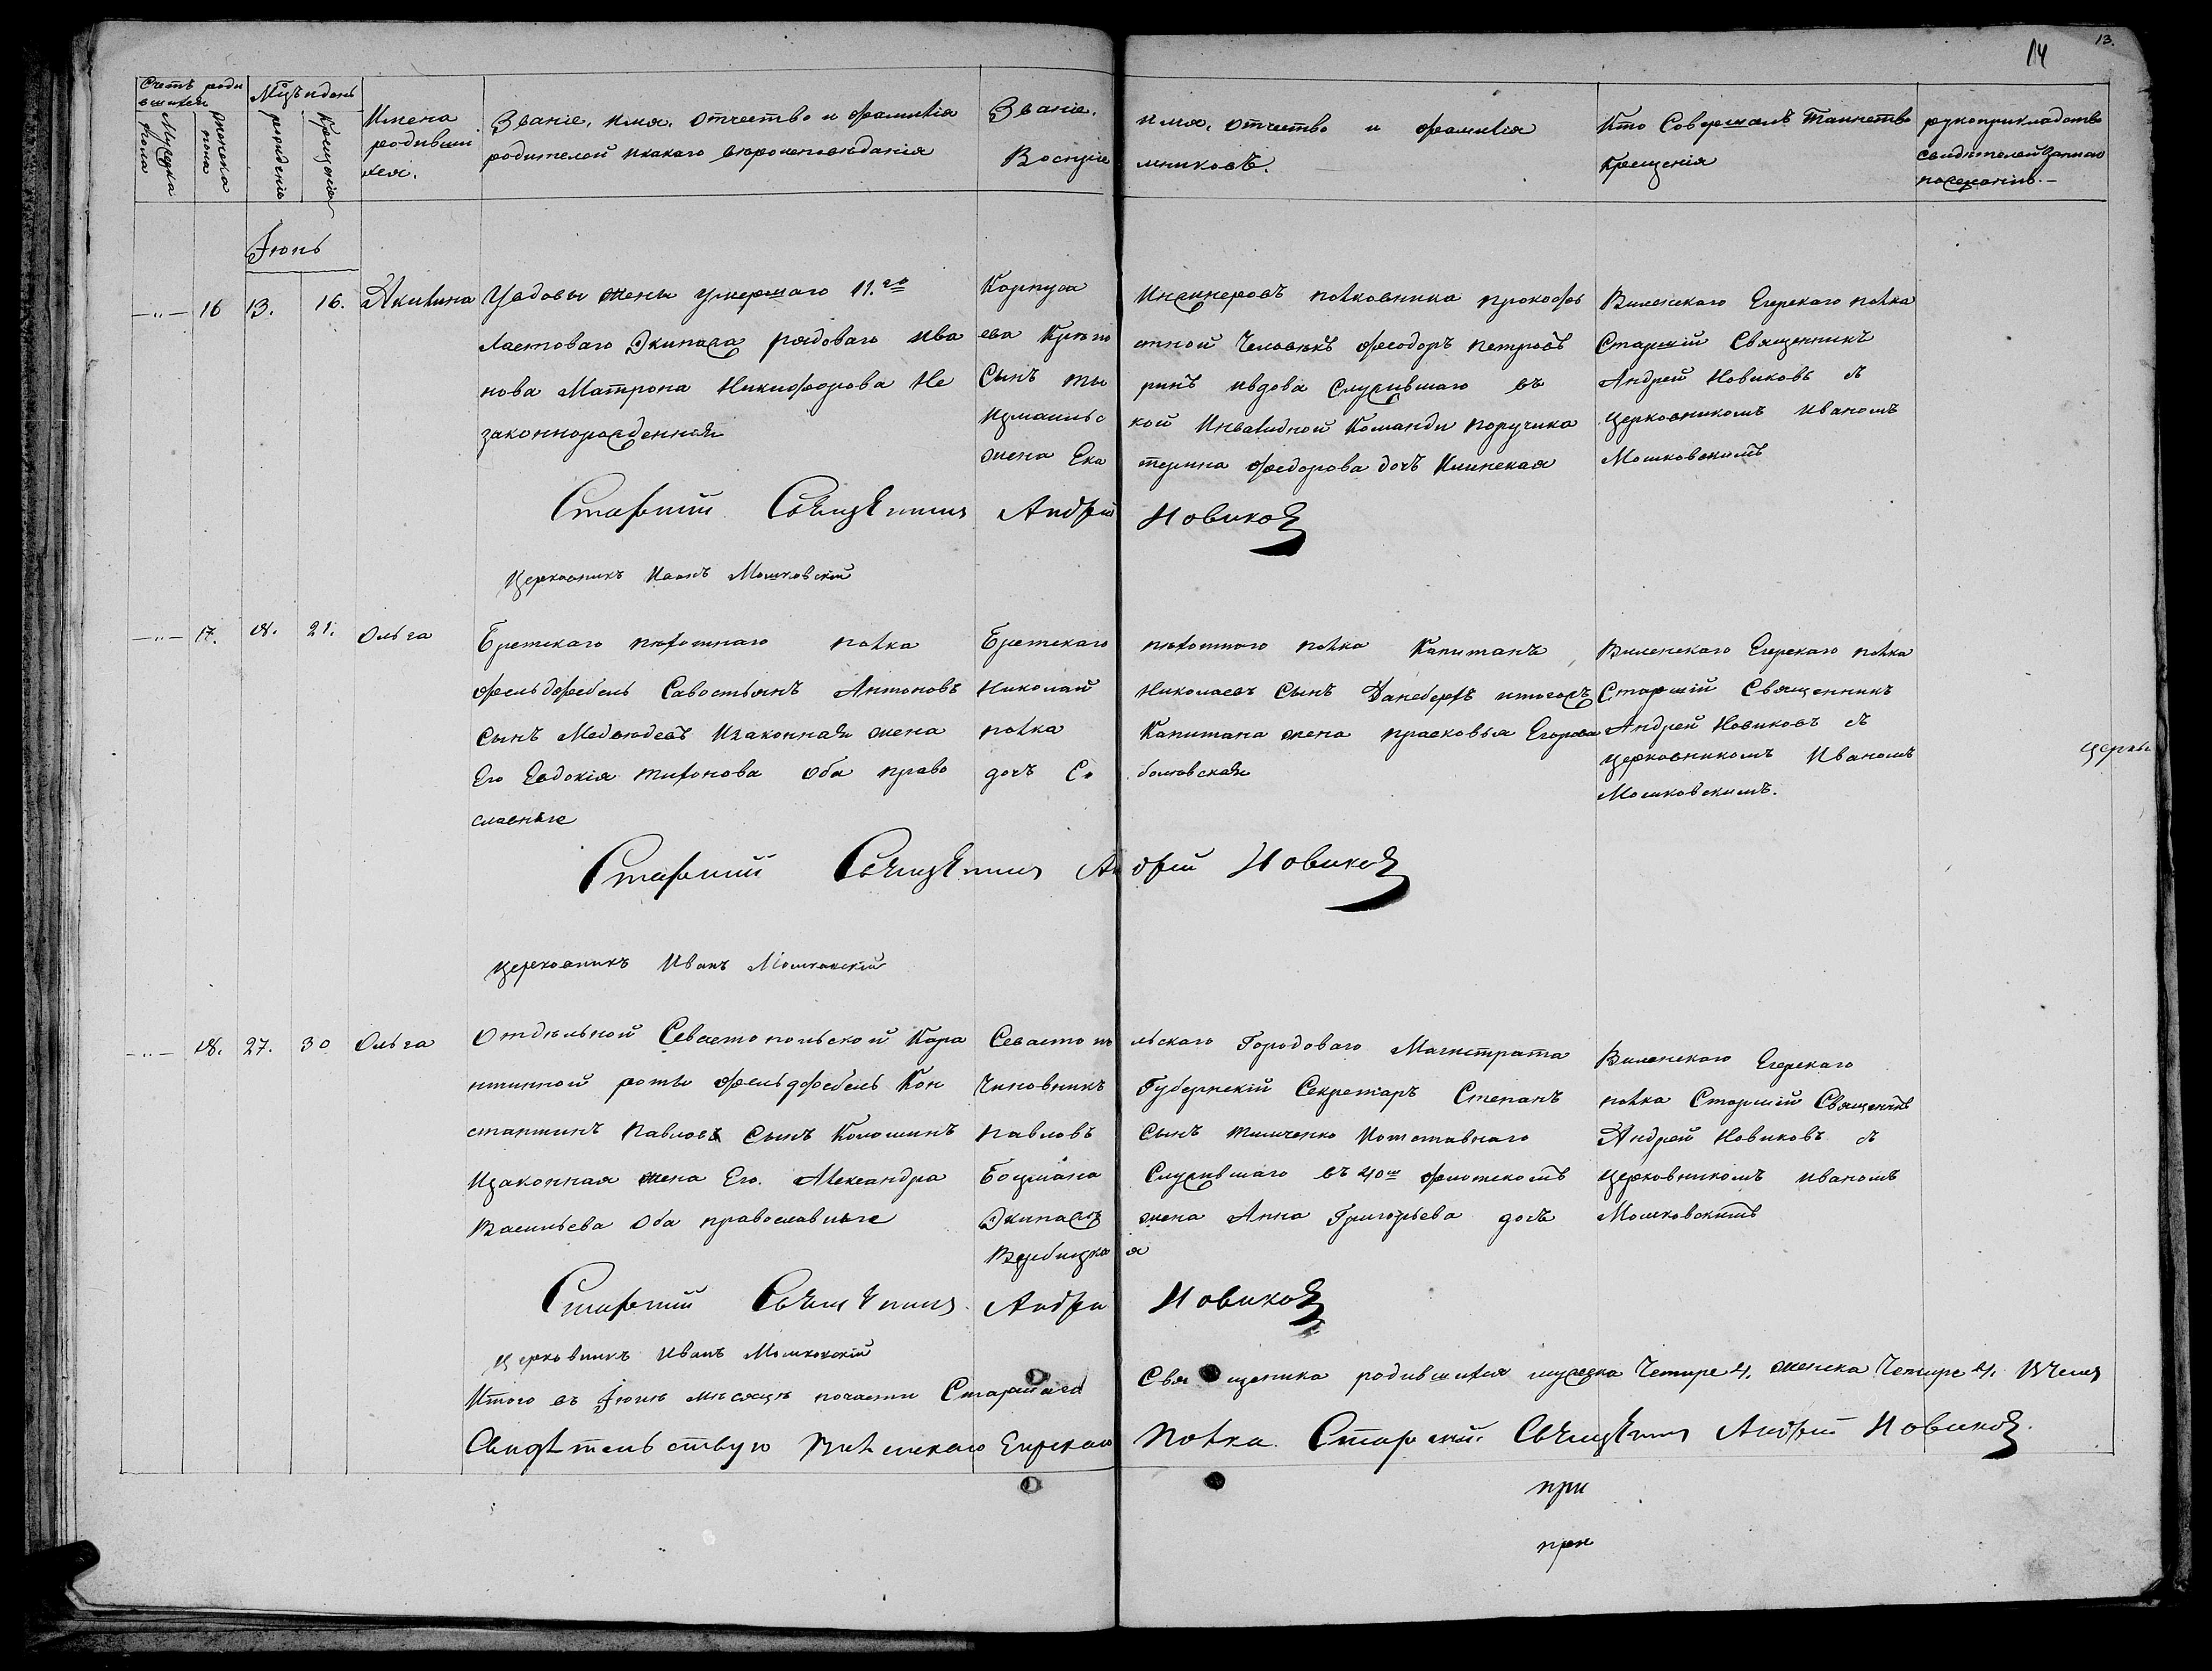 14
13.
Счетъ роди
вшихся
Мужска
пола
женска
пола
Мѣцъ и день
рожденія
крещенія
Имена
родивши
хся.
Званіе, имя, отчество и фамилія
родителей и какого вѣроисповѣданія
Званіе, имя, отчество и фамилія
Воспріемниковъ.
Кто Совершалъ Таинство
Крещенія
рукоприкладство
свидѣтелей записи
по желанію.
Іюнь
—„— 16 13. 16. Акилина
Удовы жены умершаго 11.го
Ластоваго Экипажа рядоваго Ива
нова Матрона Никифорова Не
законнорожденная
Корпуса Инженеровъ полковника прокофь
ева Крѣпостной Человѣкъ Феодоръ петровъ
Сынъ ринъ и вдова Служившаго въ
Измаильской Инвалидной Команди поручика
жена Екатерина федорова дочъ Клинская
Виленскаго Егерскаго полка
Старшій Священникъ
Андрей Новиковъ съ
церковникомъ Иваномъ
Мошковскимъ
Старшій Священникъ Андрей Новиковъ
Церковникъ Иванъ Мошковскій
—„— 17. 18. 21. Ольга
Брестскаго пѣхотнаго полка
фельдфебель Савостьянъ Антоновъ
Сынъ Медвѣдевъ И законная жена
Его Евдокія тихонова Оба право
славные
Брестскаго пѣхотного полка Капитанъ
Николай Николаевъ Сынъ и тогожъ
полка Капитана жена прасковья Егорова
дочъ Соболевская
Виленскаго Егерскаго полка
Старшій Священникъ
Андрей Новиковъ съ
церковникомъ Иваномъ
Мошковскимъ.
церкв
Старшій Священникъ Андрей Новиковъ
Церковникъ Иванъ Мошковскій
—„— 18. 27. 30 Ольга
Отдѣльной Севастопольской Кара
нтинной роты фельдфебель Кон
стантинъ Павловъ Сынъ Колошинъ
И законная жена Его. Александра
Васильева Оба православные
Севастопольскаго Городоваго Магистрата
Чиновникъ Губернскій Секретарь Степанъ
Павловъ Сынъ Тимченко И отставнаго
Боцмана Служившаго въ 40мъ флотскомъ
Экипажѣ жена Анна Григорьева дочъ
Вербицкая
Виленскаго Егерскаго
полка Старшій Священникъ
Андрей Новиковъ съ
церковникомъ Иваномъ
Мошковскимъ
Старшій Священникъ Андрей Новиковъ
Церковникъ Иванъ Мошковскій
Итого въ Іюнѣ мѣсяцѣ почасти Старшаго Священика родившихся мужеска Четыре 4. женска Четыре 4. В Чемъ
Свидѣтельствую Виленскаго Егерскаго Полка Старшій Священникъ Андрей Новиковъ.
при
при